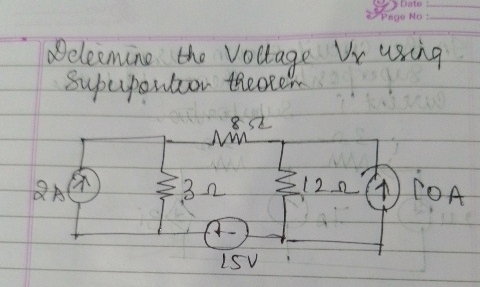 Date :
Page No :
Determine the Voltage Vx using
Superposition theorem
8Ω
2A
3Ω
12Ω
10A
15V